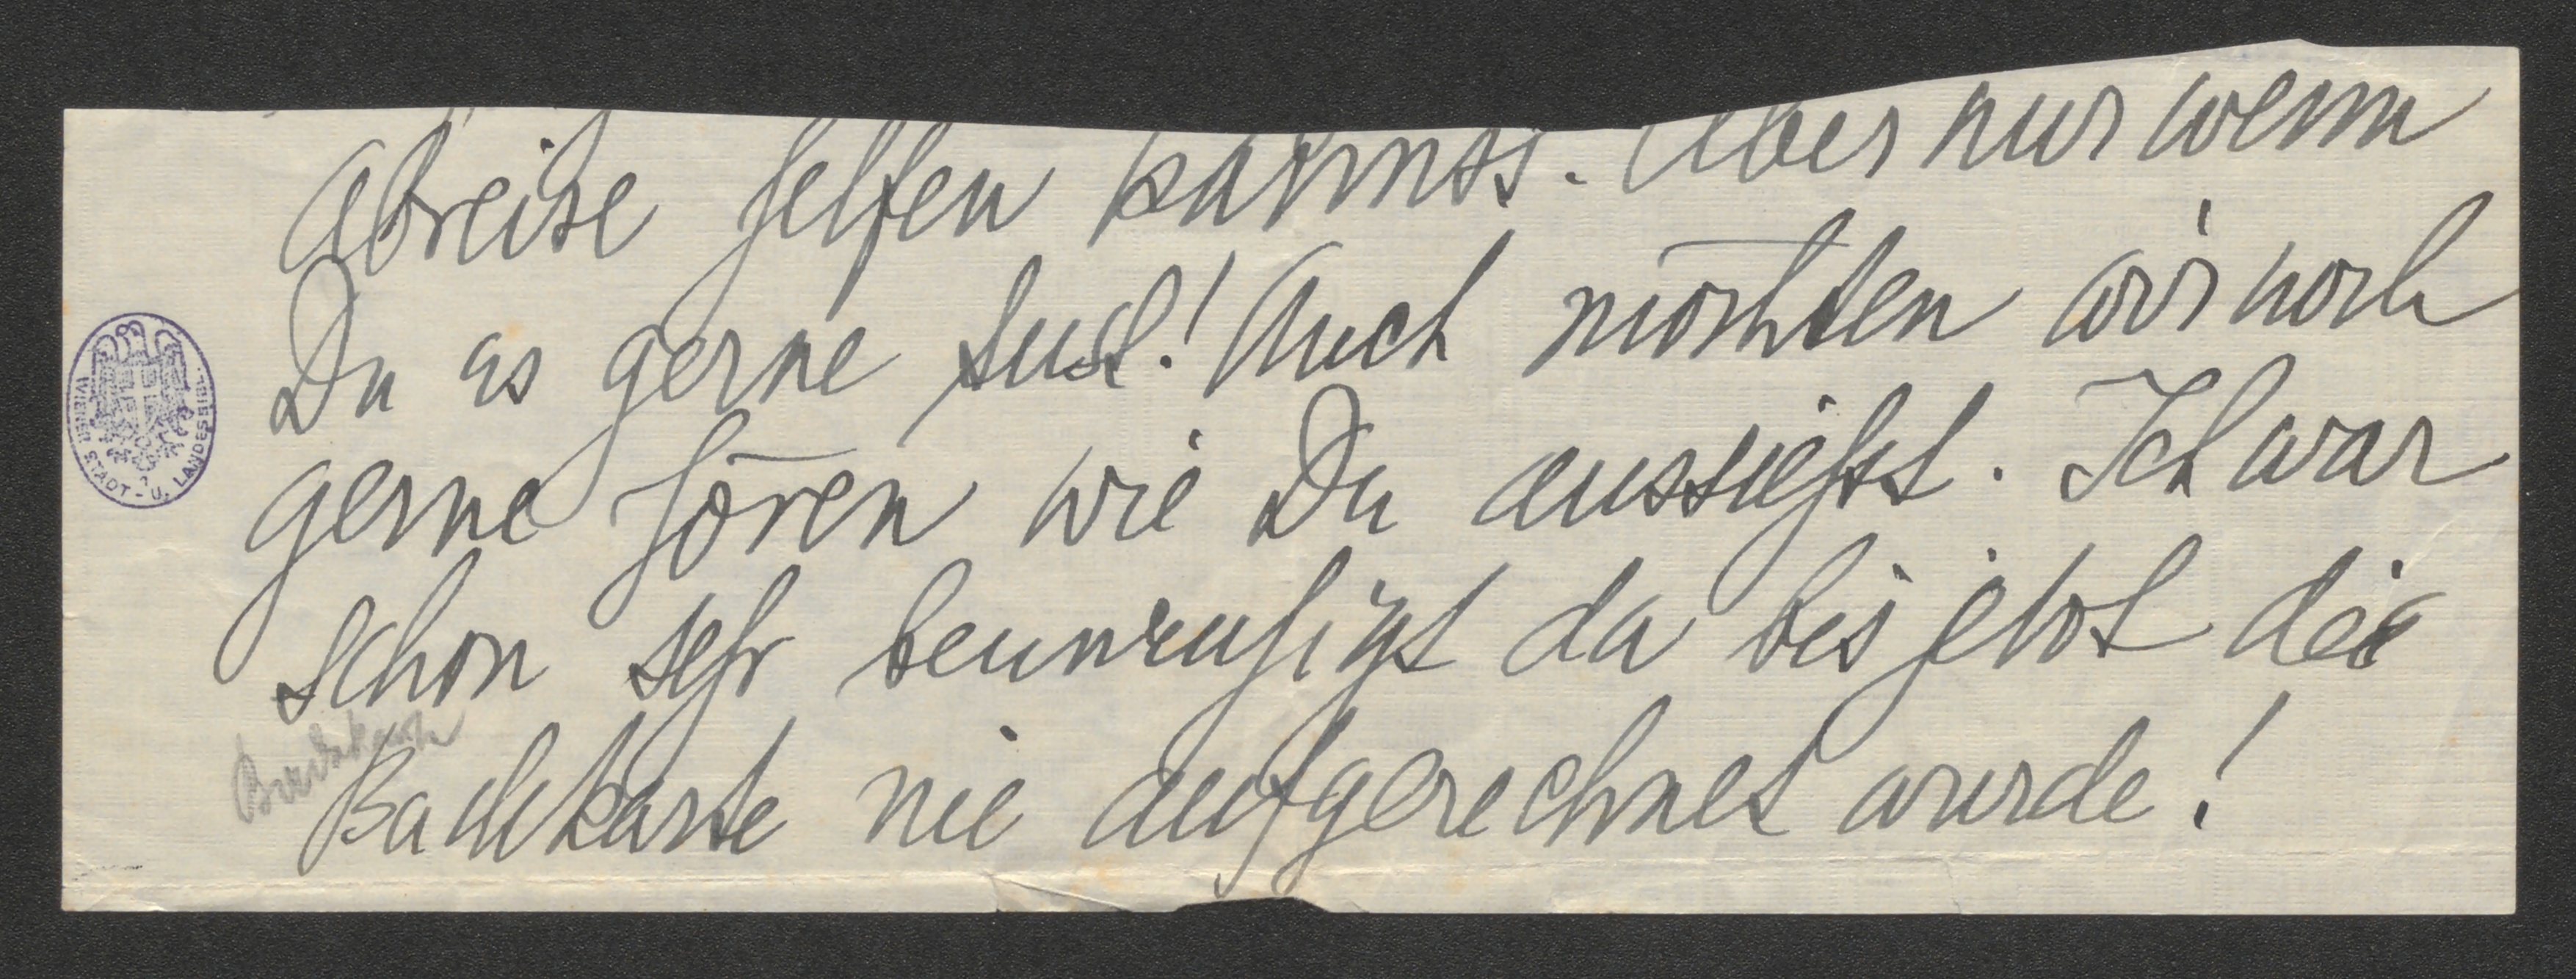 Abreise helfen kannst. Aber nur wenn
Du es gerne tust! Auch möchten wir noch
gerne hören wie Du aussiehst. Ich war
schon sehr beunruhigt da bis jetzt die
Badekarte nie aufgerechnet wurde!
WIENER STADT- U. LANDESBIBL.